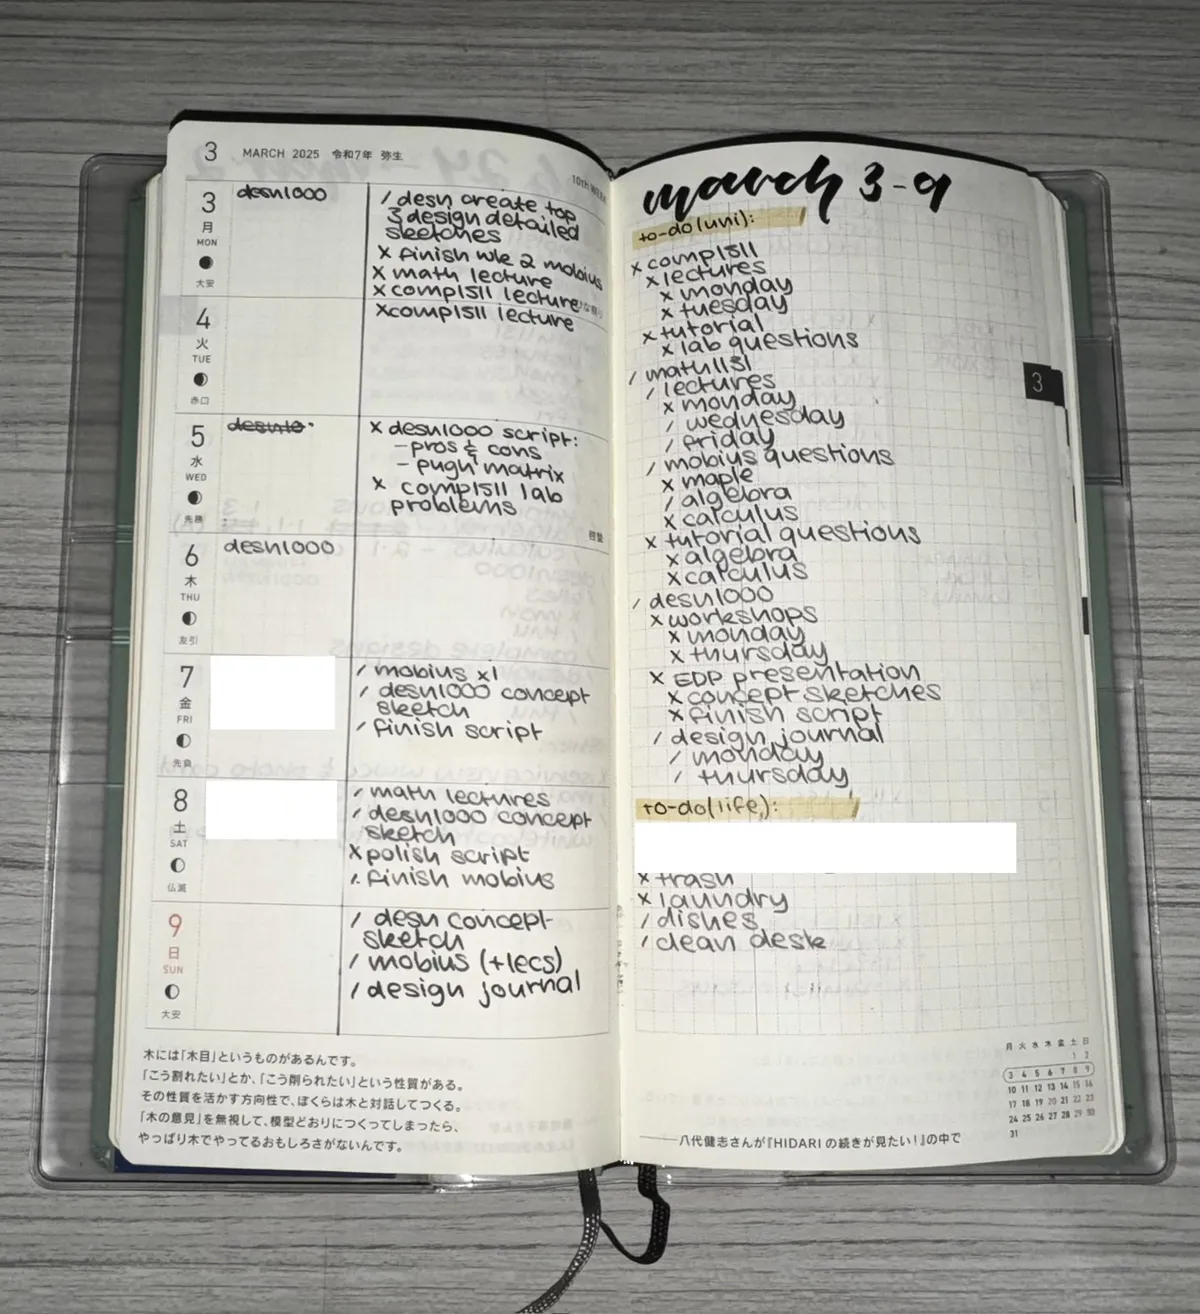 3 MARCH 2025 令和7年 弥生
10th WEEK
3 月 MON 大安
desn1000
/ desn create top
3 design detailed
sketches
x finish wk 2 mobius
x math lecture
x comp1511 lecture
4 火 TUE 赤口
x comp1511 lecture
5 水 WED 先勝
x desn1000 script:
- pros & cons
- pugh matrix
x comp1511 lab
problems
啓蟄
6 木 THU 友引
desn1000
7 金 FRI 先負
/ mobius x1
/ desn1000 concept
sketch
/ finish script
8 土 SAT 仏滅
/ math lectures
/ desn1000 concept
sketch
x polish script
/. finish mobius
9 日 SUN 大安
/ desn concept
sketch
/ mobius (+lecs)
/ design journal
木には「木目」というものがあるんです。
「こう割れたい」とか、「こう削られたい」という性質がある。
その性質を活かす方向性で、ぼくらは木と対話してつくる。
「木の意見」を無視して、模型どおりにつくってしまったら、
やっぱり木でやってるおもしろさがないんです。
march 3-9
to-do(uni):
x comp1511
x lectures
x monday
x tuesday
x tutorial
x lab questions
/ math1131
/ lectures
x monday
/ wednesday
/ friday
/ mobius questions
x maple
/ algebra
x calculus
x tutorial questions
x algebra
x calculus
/ desn1000
x workshops
x monday
x thursday
x EDP presentation
x concept sketches
x finish script
/ design journal
/ monday
/ thursday
to-do(life):
x trash
x laundry
/ dishes
/ clean desk
3
月 火 水 木 金 土 日
1 2
3 4 5 6 7 8 9
10 11 12 13 14 15 16
17 18 19 20 21 22 23
24 25 26 27 28 29 30
31
——八代健志さんが『HIDARIの続きが見たい!』の中で